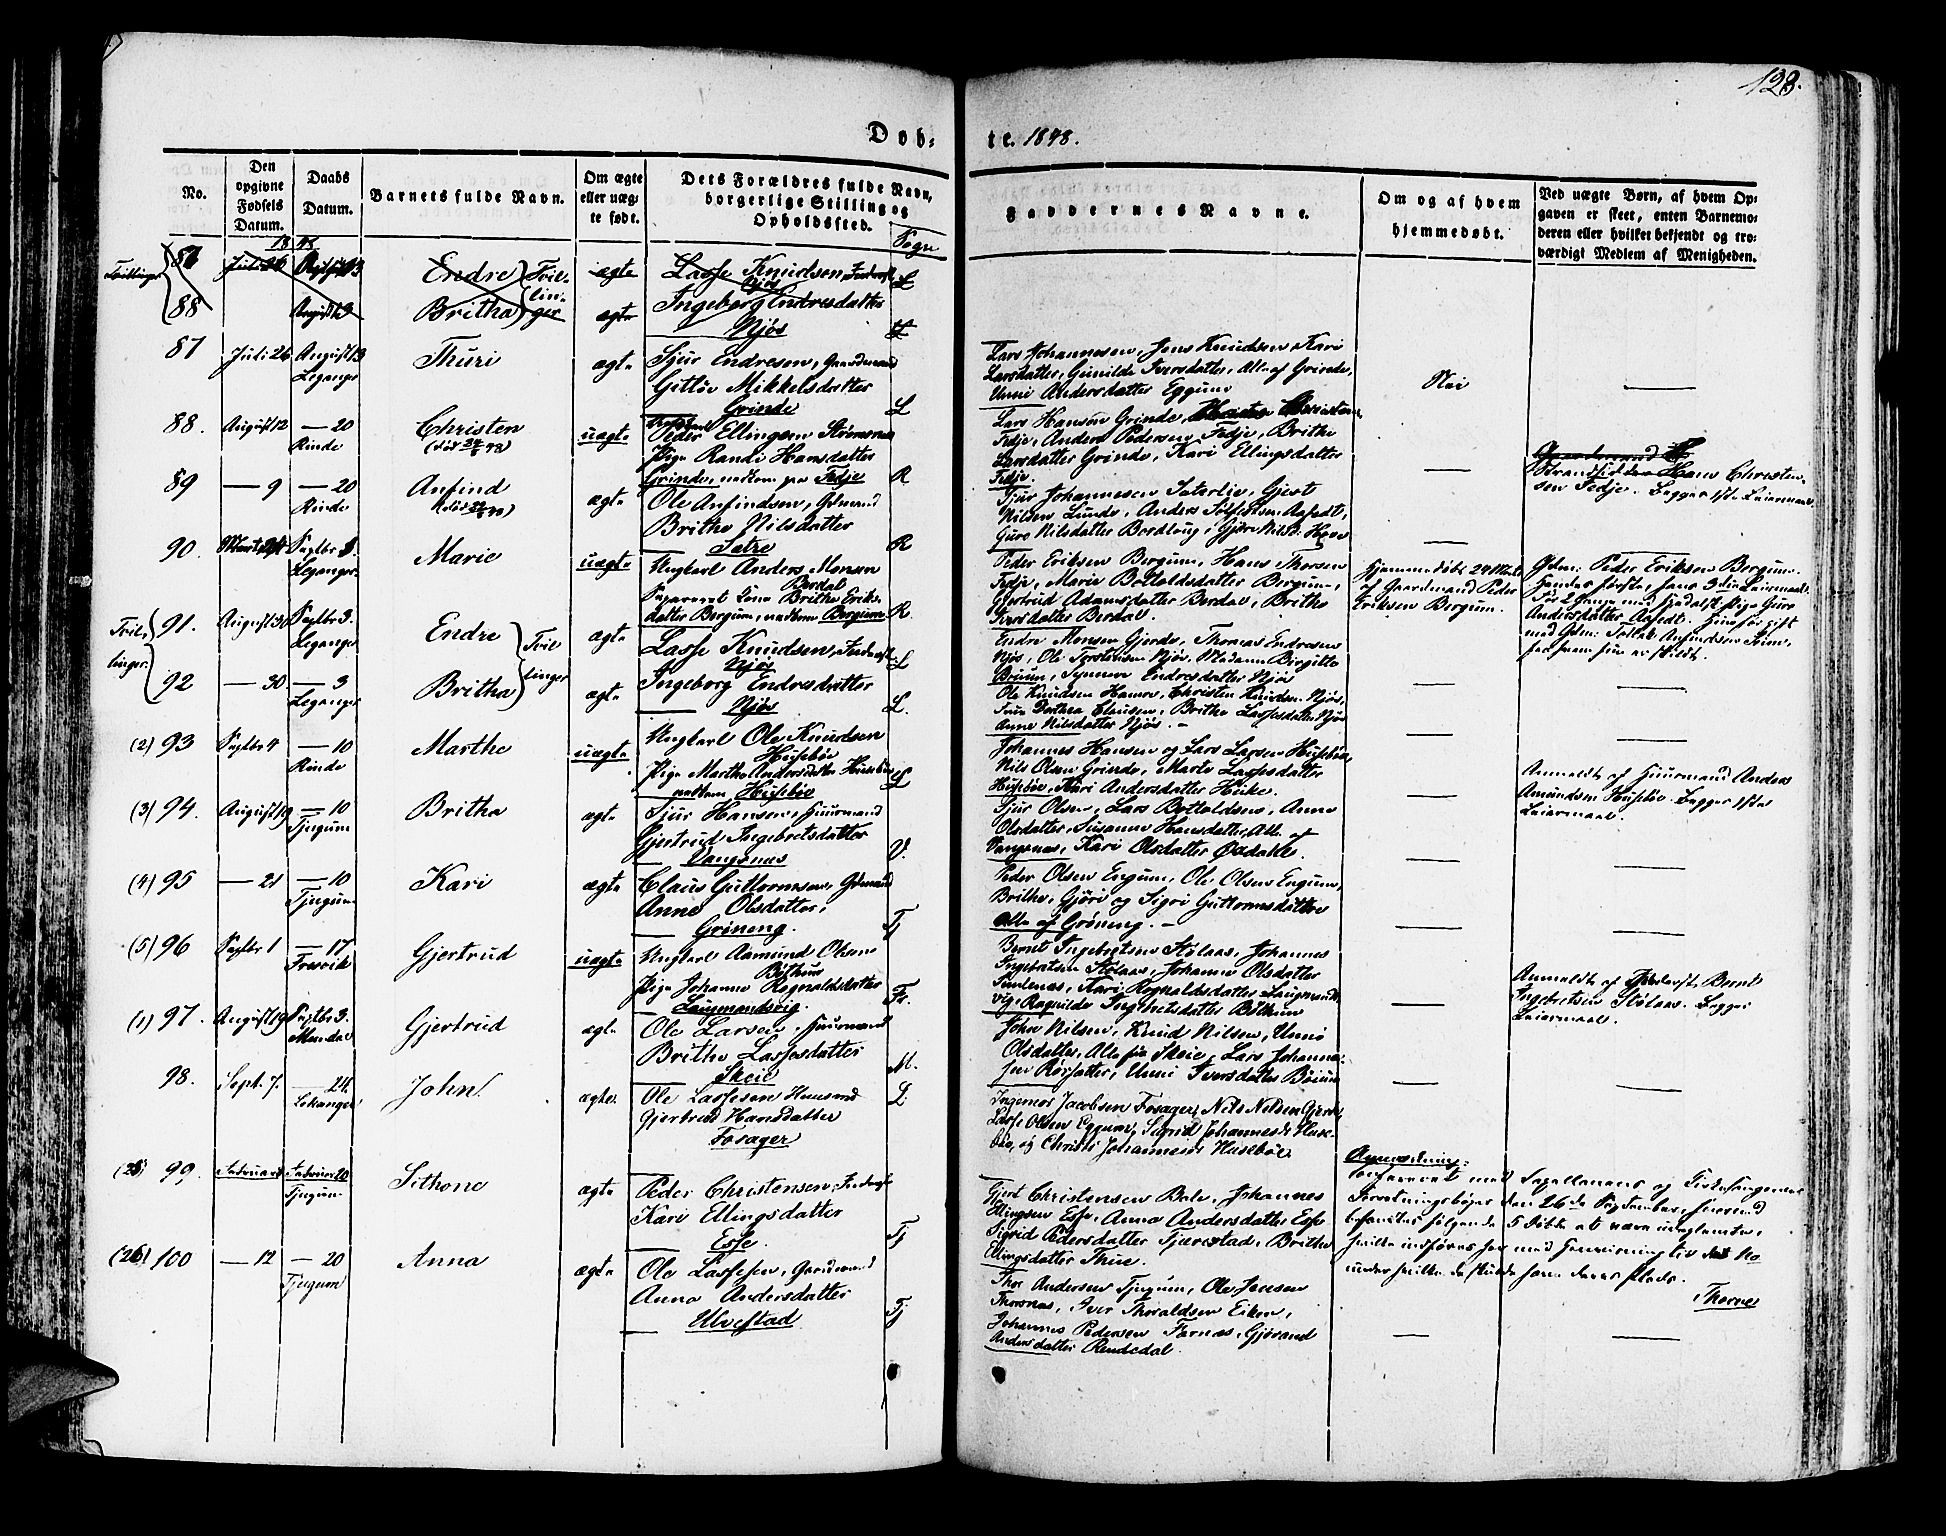 128.
Døb-
te. 1848.
No.
Den opgivne Fødsels Datum.
Daabs Datum.
Barnets fulde Navn.
Om ægte eller uægte født.
Dets Forældres fulde Navn, borgerlige Stilling og Opholdssted.
Sogn
Faddernes Navne.
Om og af hvem hjemmedøbt.
Ved uægte Børn, af hvem Opgaven er skeet, enten Barnemoderen eller hvilket bekjendt og troværdigt Medlem af Menigheden.
1848
Tvillinger
87
Endre
ægte
Lasse Knudsen
Njøs
L
88
Britha
Tvillinger
ægte
Ingeborg Endresdatter
Njøs
L
87
Juli 26
August 13
Leganger
Thuri
ægte
Sjur Endresen, Gaardmand
Gitlöv Mikkelsdatter
Grinde
L
Lars Johannesen, Jens Knudsen, Kari
Larsdatter, Gunilde Iversdatter, Alle af Grinde,
Unni Andersdatter Eggum
Nei
88.
August 12
— 20
Rinde
Christen
uægte
Peder Ellingsen Strømsnes
Pige Randi Hansdatter
Grinde, nedkom paa Fedje
R
Lars Hansen Grinde,
Fedje, Anders Pedersen Fedje, Brithe
Larsdatter Grinde, Kari Ellingsdatter
Fedje.
Strandsidder Hans Christensen Fedje. Begges 1ste Leiermaal.
89
— 9
— 20
Rinde
Anfind
ægte
Ole Anfindsen, Gdmand
Brithe Nilsdatter
Satre
R
Sjur Johannesen Saterlie, Gjert
Nilsen Lunde, Anders Tollefsen Aafedt,
Guro Nilsdatter Bordloug, Gjøri Nilsd. Hove
90.
Marts 24
Septbr 3.
Leganger
Marie
uægte
Ungkarl Anders Monsen
Berdal
Separeret Kone Brithe Eriks-
datter Bergum, nedkom Bergum
R.
Peder Eriksen Bergum, Hans Thorsen
Fedje, Marie Bottoldsdatter Bergum,
Gjertrud Adamsdatter Berdal, Brithe
Iversdatter Berdal.
Hjemmedøbt 24 Marts
af Gaardmand Peder
Eriksen Bergum.
Gdm: Peder Eriksen Bergum.
Hendes første, hans 3die Leiermaal.
Andersdatter Aafedt. Hun før gift
med Gdm: Tollak Anfindsen Seim,
fra hvem hun er skildt.
Tvillinger.
91.
August 30
Septbr 3.
Leganger
Endre
ægte
Lasse Knudsen,
Njøs
L
Endre Monsen Gjerde, Thomas Endresen
Njøs, Ole Torstensen Njøs, Madame Birgitte
Bruun, Synneve Endresdatter Njøs
92
— 30
— 3
Leganger
Britha
Tvillinger
ægte
Ingeborg Endresdatter
Njøs
L.
Ole Knudsen Hamre, Christen Knudsen Njøs,
Dorthea Clausen, Brithe Lassesdatter Njøs
Anne Nilsdatter Njøs. —
(2) 93
Septbr 4
— 10
Rinde
Marthe
uægte
Ungkarl Ole Knudsen
Husebøe
Pige Marthe Andersdatter Husebøe
nedkom Husebøe
L
Johannes Hansen og Lars Larsen Husebøe,
Nils Olsen Grinde, Marte Lassesdatter
Husebøe, Kari Andersdatter Heike.
Anmeldt af Huusmand Anders
Amundsen Husebøe. Begges 1ste
Leiermaal.
(3) 94.
August 19
— 10
Tjugum
Britha
ægte
Sjur Hansen, Huusmand
Gjertrud Ingebretsdatter
Vangsnæs
V.
Sjur Olsen, Lars Bottoldsen, Anne
Olsdatter, Susanne Hansdatter, Alle af
Vangsnæs, Kari Olsdatter Oxdahle.
(4) 95
— 21
— 10
Tjugum
Kari
ægte
Claus Guttormsen, Gdmand
Anne Olsdatter,
Grøneng.
Tj
Peder Olsen Engum, Ole Olsen Engum,
Brithe, Gjøri og Sigri Guttormsdatter
Alle af Grøneng. —
(5) 96
Septbr 1
— 17
Fresvik
Gjertrud
uægte
Ungkarl Aamund Olsen
Bøthun
Pige Johanne Ragnaldsdatter
Laugmandsvig.
Fr.
Bernt Ingebretsen Stølaas, Johannes
Ingebretsen Stølaas, Johanne Olsdatter
Simlenæs, Kari Ragnaldsdatter Laugmands-
vig, Ragnilde Ingebretsdatter Bøthun
Anmeldt af Bernt
Ingebretsen Stølaas. Begges
Leiermaal.
(1) 97.
August 19
Septbr 3.
Mundal
Gjertrud
ægte
Ole Larsen, Huusmand
Brithe Lassesdatter
Skeie
M.
John Nilsen, Knud Nilsen, Unni
Olsdatter, Alle fra Skeie, Lars Johanne-
sen Rørsatter, Unni Iversdatter Bøium
98.
Sept. 7.
— 24.
Lekanger
John
ægte.
Ole Lassesen Huusmd
Gjertrud Hansdatter
Fosager
L.
Ingemor Jacobsen Fosager, Nils Nilsen Gjerde,
Lasse Olsen Eggum, Sigrid Johannesd. Huse-
bøe, og Christi Johannesd. Husebøe.
(25) 99.
Februar 20
Tjugum
Sithone
ægte
Peder Christensen,
Kari Ellingsdatter
Esse.
Tj
Gjert Christensen Bale, Johannes
Ellingsen Esse, Anna Andersdatter Esse
Sigrid Pedersdatter Tjærestad, Brithe
Ellingsdatter Thue.
Anmerkning:
confereret med Capellanens og Kirkesangernes
Forretningsbøger den 26de September, hvorved
befantes følgende 5 Døbte at være uindførte,
hvilke indføres her med Henviisning til det No
under hvilke de skulde have deres Plads.
Thorne
(26) 100
— 12
— 20
Tjugum
Anna
ægte
Ole Lassesen, Gaardmand
Anna Andersdatter
Ulvestad
Tj
Thor Andersen Tjugum, Ole Jensen
Thorsnæs, Iver Thoraldsen Eiken,
Johannes Pedersen Farnæs, Gjørand
Andersdatter Rendedal.